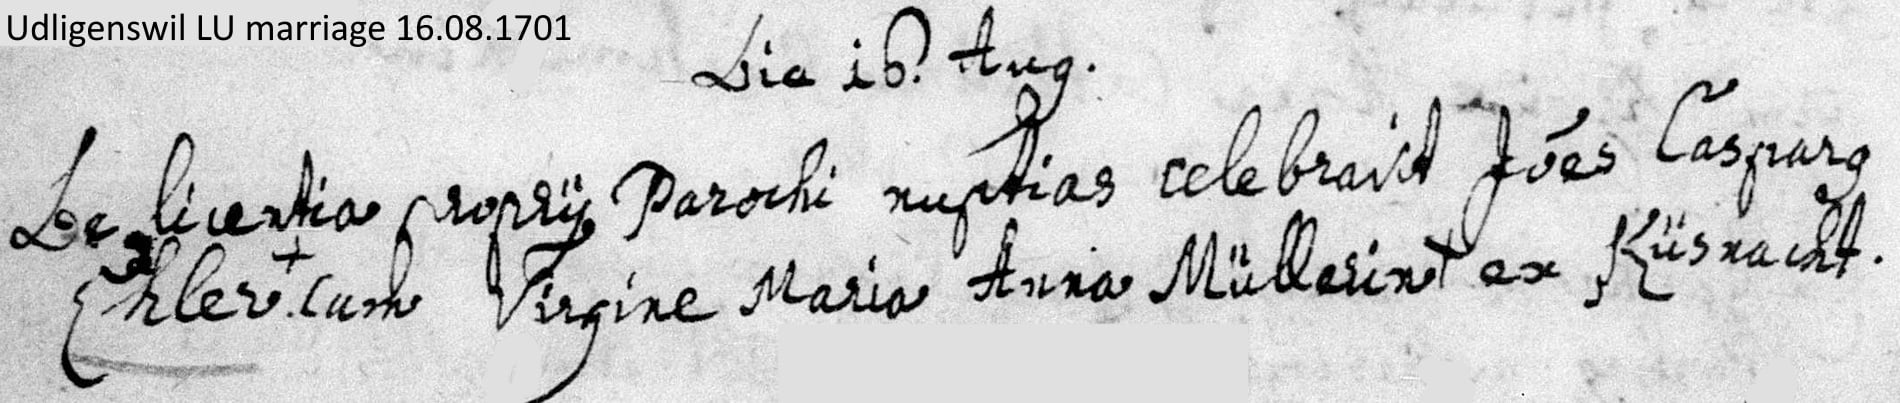 Udligenswil LU marriage 16.08.1701
Die 16. Aug.
De licentia proprij Parochi nuptias celebravit Jöes Casparg
Ehler. + cum Virgine Maria Anna Müllerin + ex Küsnacht.